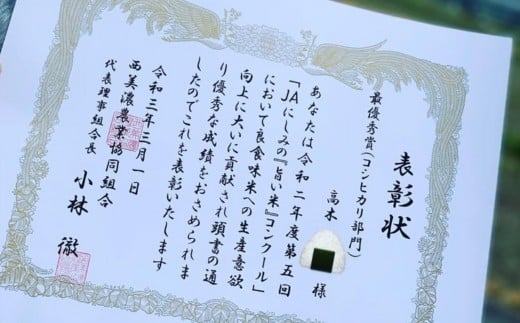 表彰状
最優秀賞(コシヒカリ部門)
高木
様
あなたは令和二年度第五回
「JAにしみの『旨い米』コンクール」
において良食味米への生産意欲
向上に大いに貢献され頭書の通
り優秀な成績をおさめられま
したのでこれを表彰いたします
令和三年三月一日
西美濃農業協同組合
代表理事組合長
小林 徹